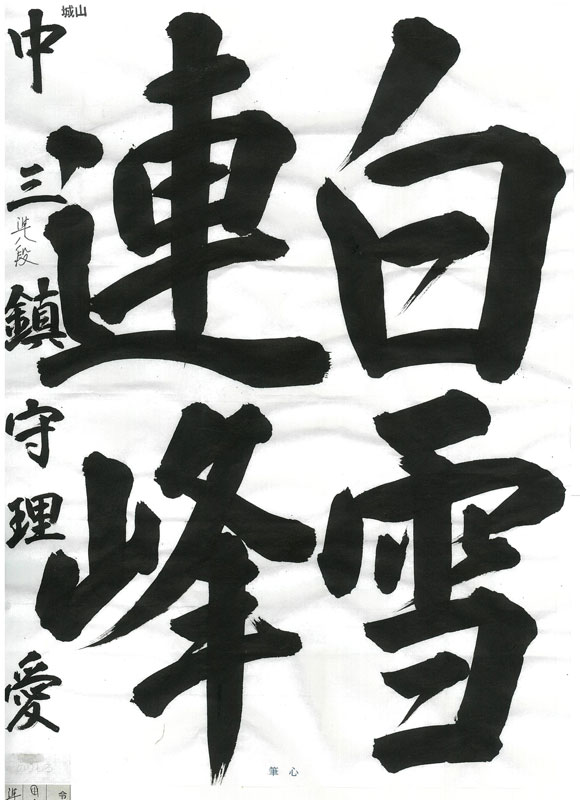 白雪
連峰
城山
中三 鎮守理愛
準八段
筆心
令